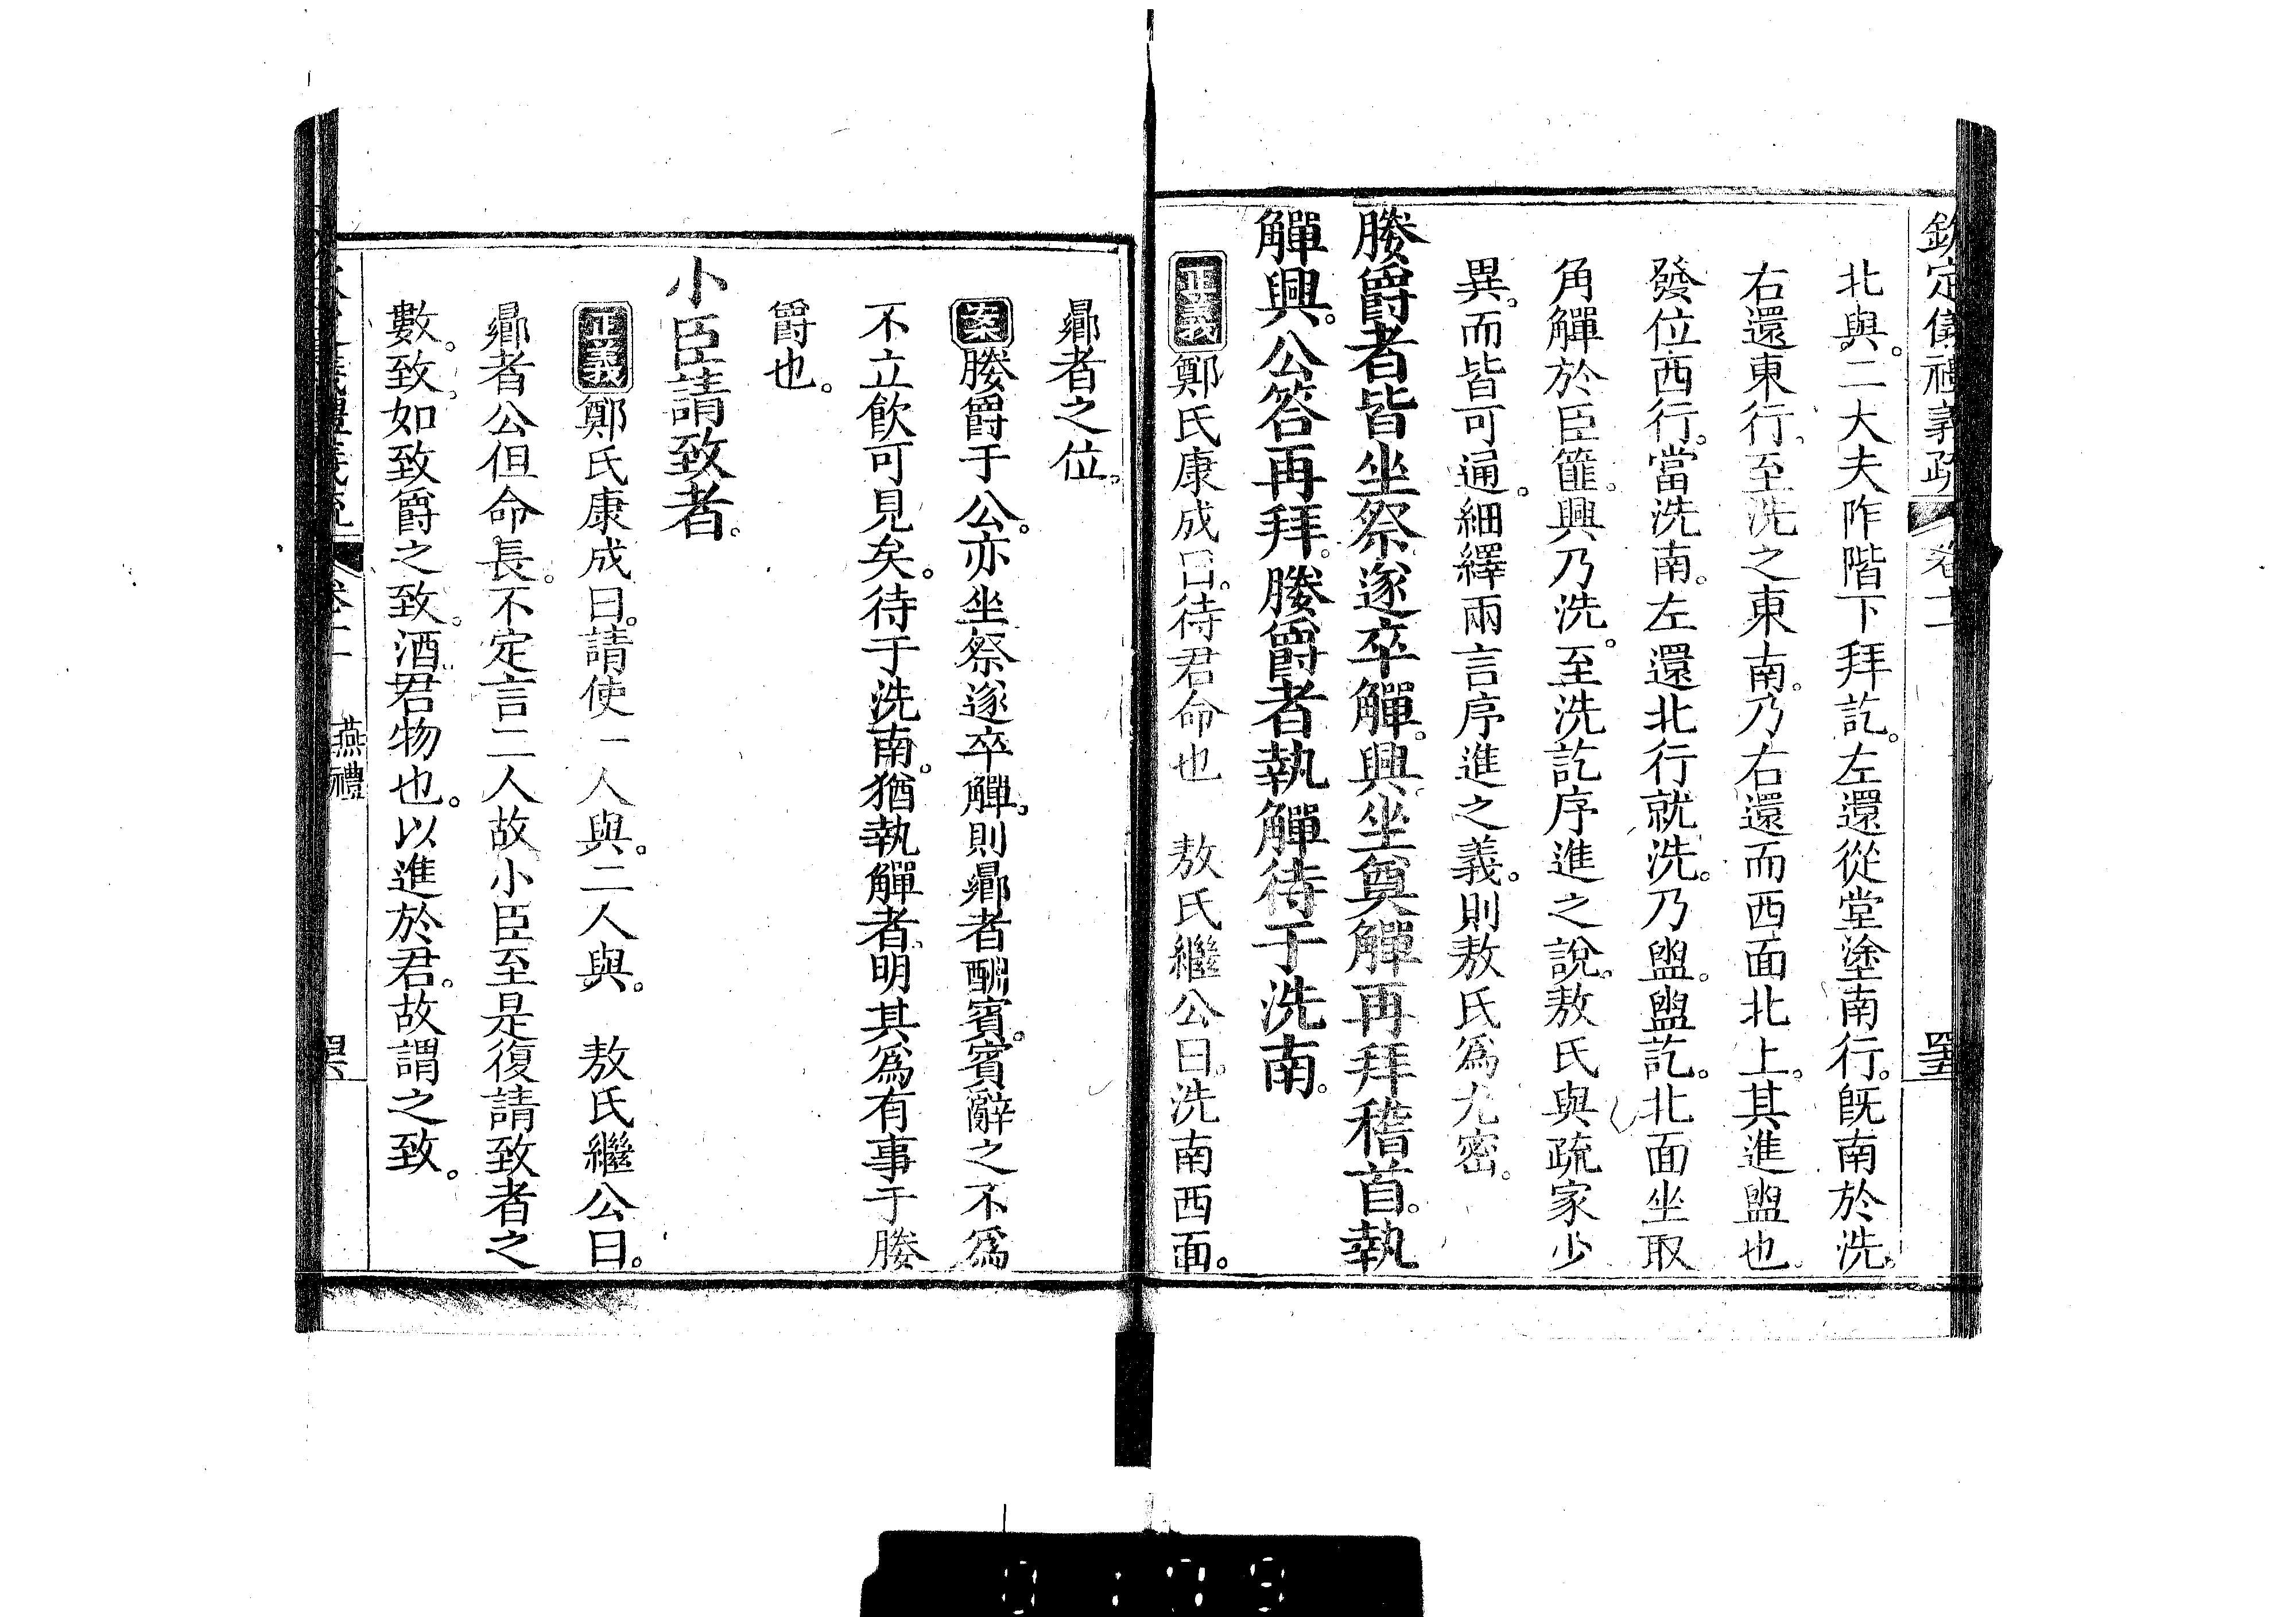 欽定儀禮義疏 卷十二
北與。二大夫阼階下拜訖。左還從堂塗南行。旣南於洗。
右還東行、至洗之東南。乃右還而西面北上。其進盥也。
發位西行。當洗南。左還北行就洗。乃盥。盥訖。北面坐取
角觶於臣篚。興乃洗。至洗訖序進之說。敖氏與疏家少
異。而皆可通。細繹兩言序進之義。則敖氏爲尤密。
媵爵者皆坐祭遂卒觶。興坐奠觶再拜稽首。執
觶興。公答再拜。媵爵者執觶待于洗南。
正義鄭氏康成曰。待君命也 敖氏繼公曰。洗南西面。
鄉者之位。
案媵爵于公。亦坐祭遂卒觶。則鄉者酬賓。賓辭之不爲
不立飲可見矣。待于洗南。猶執觶者、明其爲有事于媵
爵也。
小臣請致者。
正義鄭氏康成曰。請使一人與。二人與。 敖氏繼公曰。
鄉者公但命長。不定言二人故小臣至是復請致者之
數。致。如致爵之致。酒君物也。以進於君。故謂之致。
燕禮